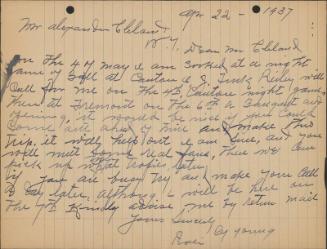 Apr 22 - 1937
Mr Alexander Cleland
N.Y.
Dear Mr Cleland
on the 4 of may I am booked at a night
Game of Ball at Canton O
call for me on the 4th Canton night game
then at Fremont on the 6th a Banquet and
opening, it would be nice if you could
come out ahead of time and make this
trip. it will help out I am sure, and you
will meet some real fans, then we can
Pick up what
if you are busy try and make your call
a day later, although I will be here on
the 7th Kindly advise me by return mail
Yours Sincerely
Cy young